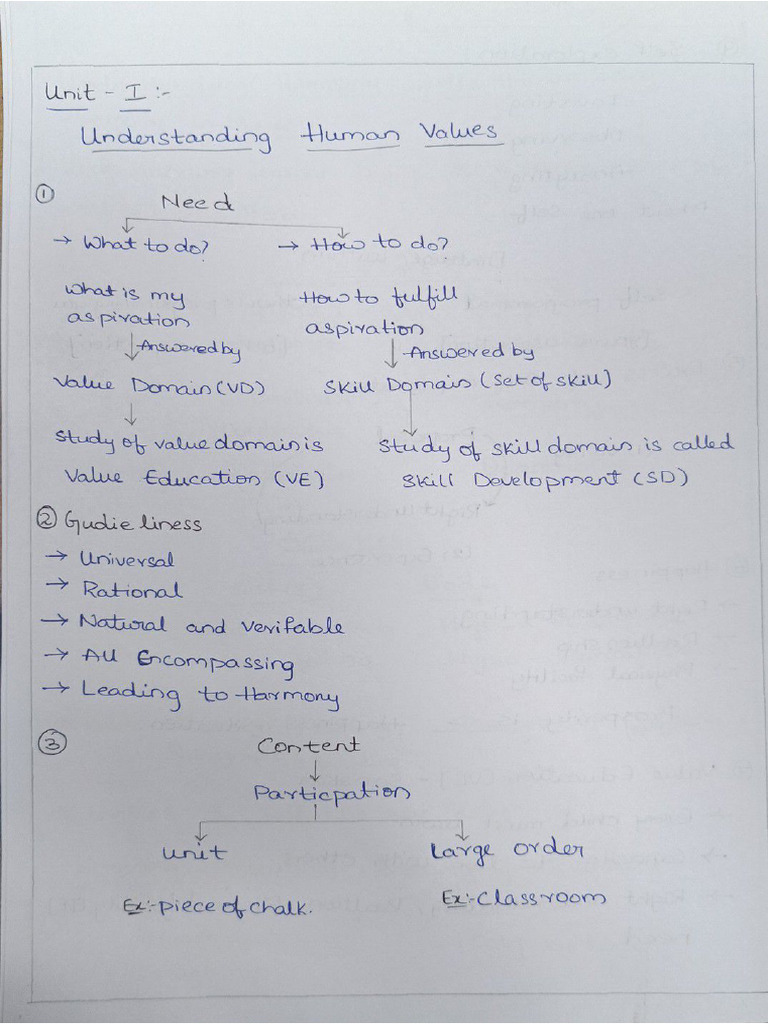 Unit - I :-
Understanding Human Values
① Need
→ What to do? → How to do?
What is my How to fulfill
aspiration aspiration
↓ Answered by ↓ Answered by
Value Domain (VD) Skill Domain (Set of skill)
Study of value domain is Study of skill domain is called
Value Education (VE) Skill Development (SD)
② Gudie liness
→ Universal
→ Rational
→ Natural and verifable
→ All Encompassing
→ Leading to Harmony
③ Content
Particpation
unit Large order
Ex:- piece of chalk. Ex:- Classroom